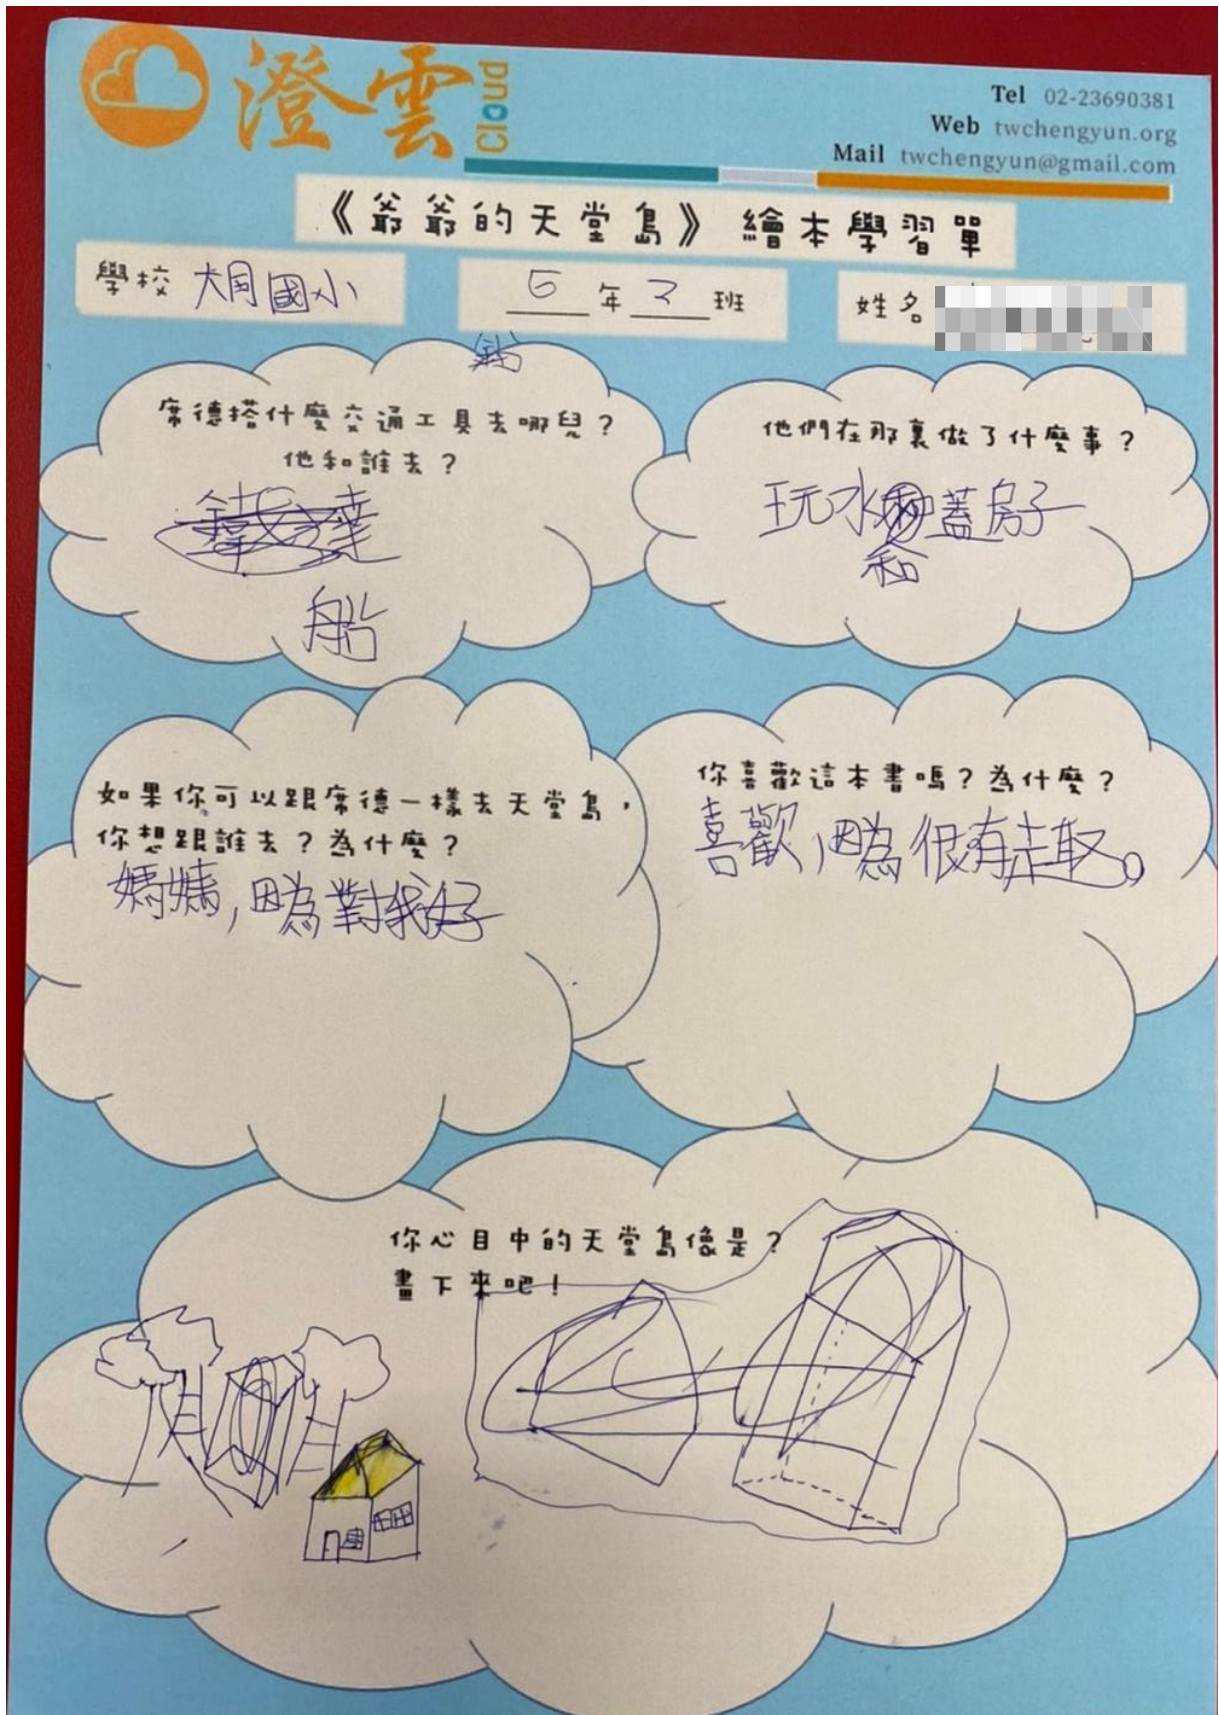 澄雲 Cloud
Tel 02-23690381
Web twchengyun.org
Mail twchengyun@gmail.com
《爺爺的天堂島》 繪本學習單
學校 大同國小
5 年 2 班
姓名
席德搭什麼交通工具去哪兒?
他和誰去?
船
他們在那裏做了什麼事?
玩水和蓋房子
如果你可以跟席德一樣去天堂島,
你想跟誰去?為什麼?
媽媽,因為對我好
你喜歡這本書嗎?為什麼?
喜歡,因為很有趣。
你心目中的天堂島像是?
畫下來吧!